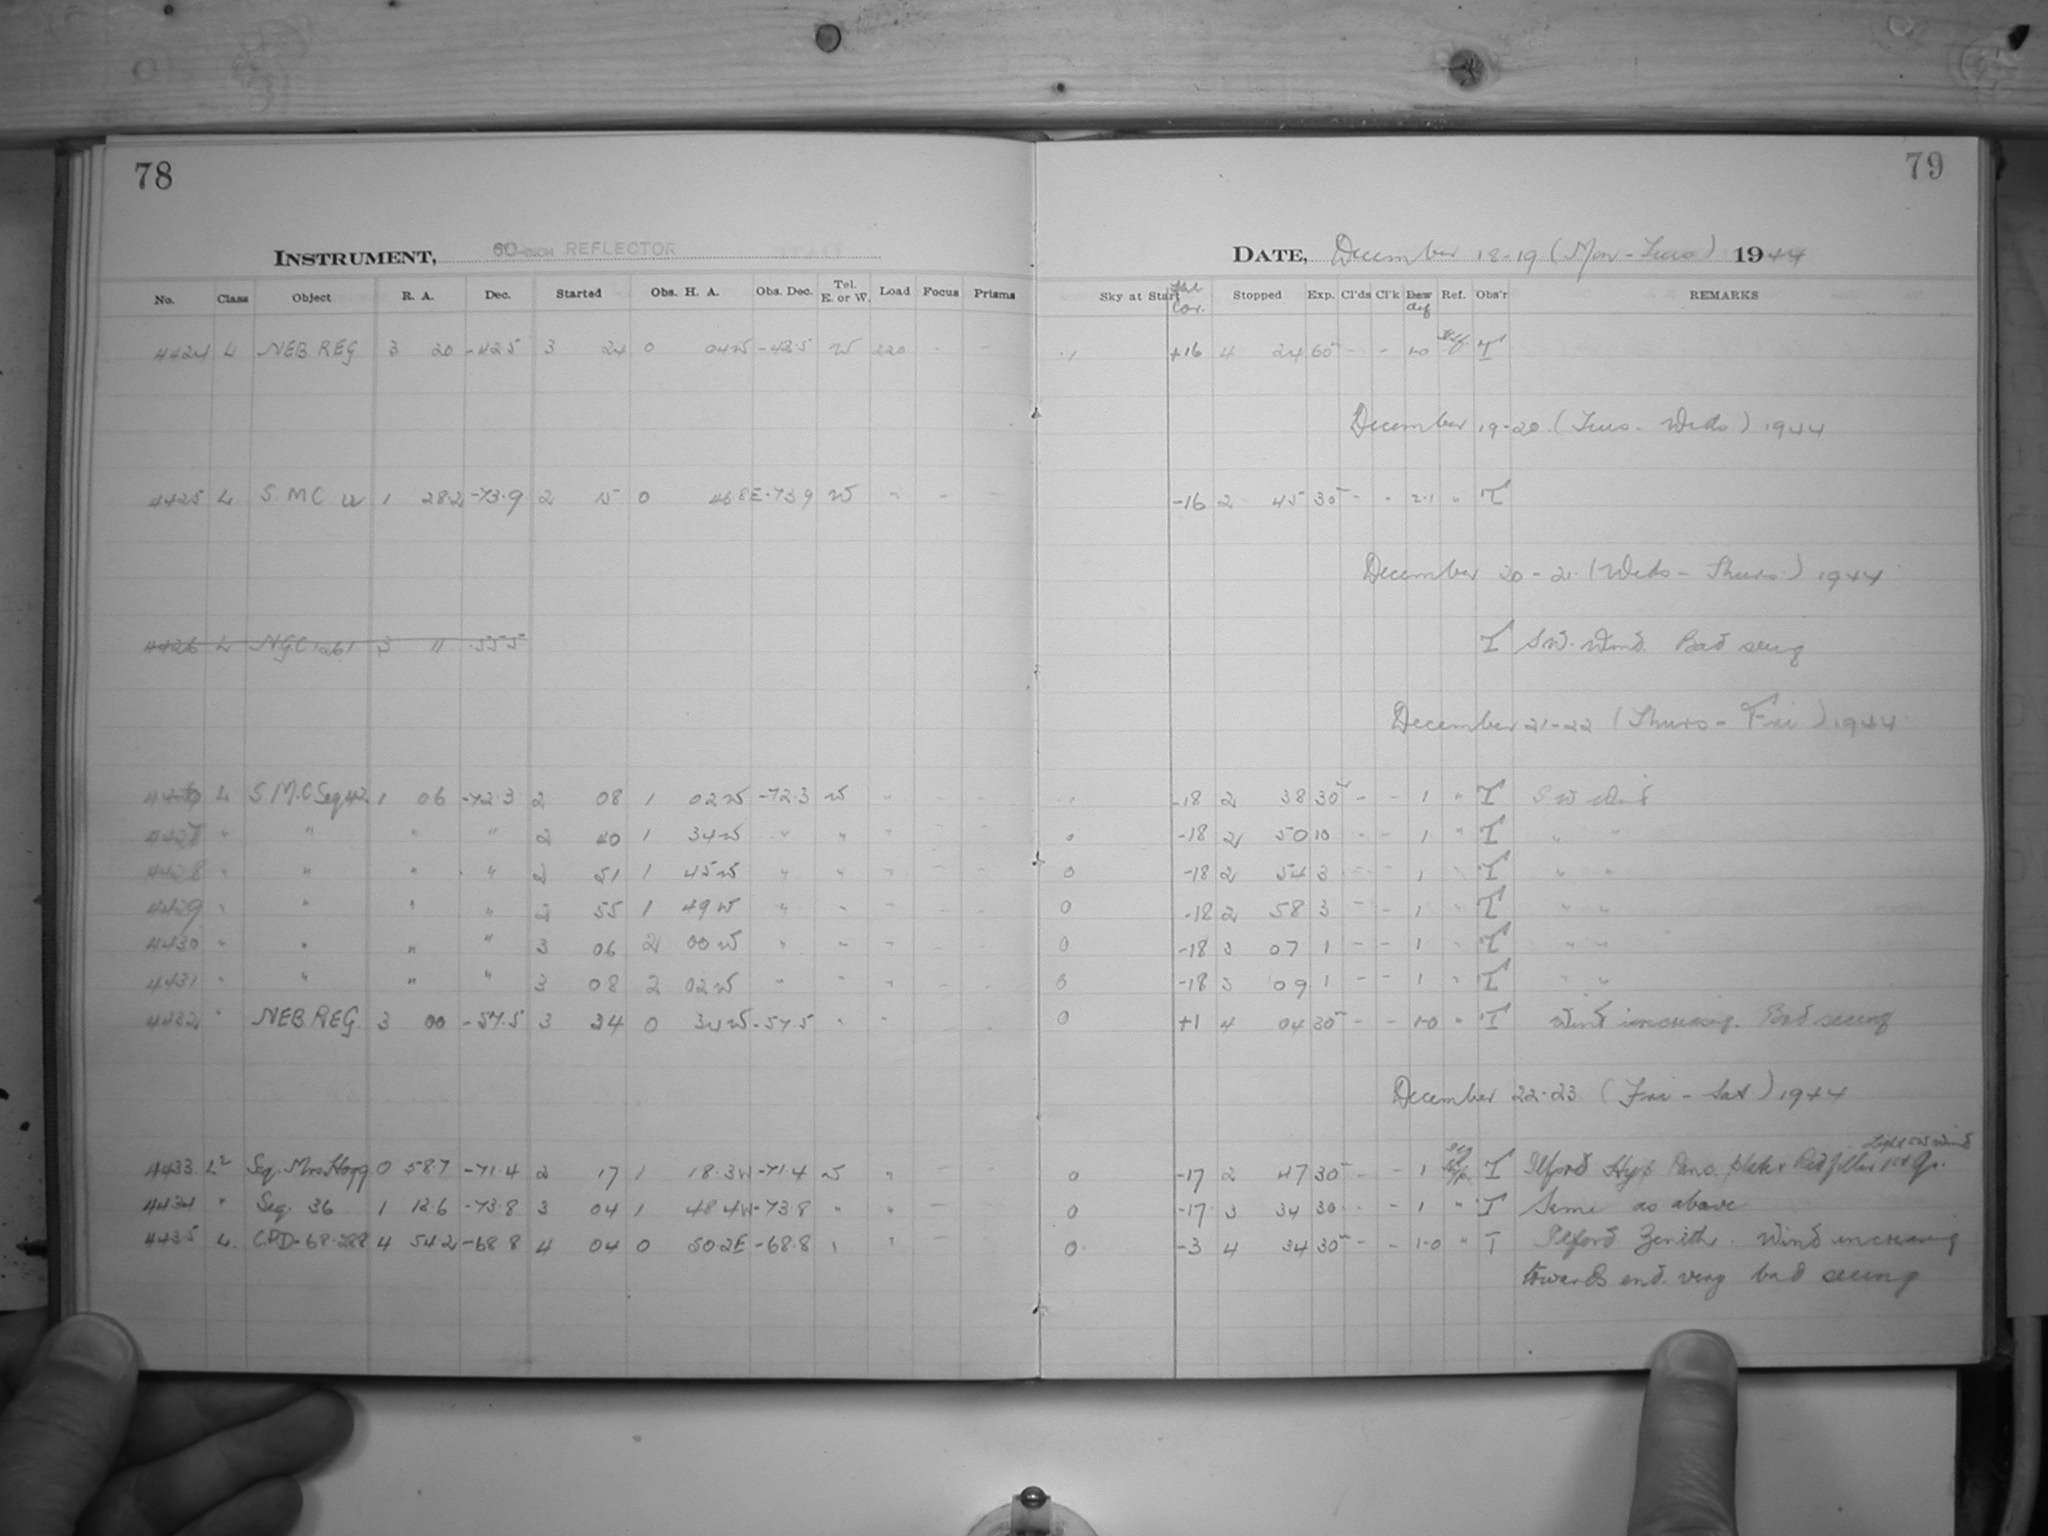 78
79
INSTRUMENT, 60-INCH REFLECTOR
DATE, December 18-19 (Mon-Tues) 1944
No. Class Object R. A. Dec. Started Obs. H. A. Obs. Dec. Tel. E. or W. Load Focus Prisms Sky at Start Cor. Stopped Exp. Cl'ds Cl'k Dew def Ref. Obs'r REMARKS
4424 L NEB REG 3 20 -42.5 3 24 0 04W -42.5 W 220 - - .1 +16 4 24 60 - - T
December 19-20 (Tues - Weds) 1944
4425 L S.M.C 1 28.2 -73.9 2 15 0 46.8E -73.9 W " - - -16 2 45 30 - - 2.1 " T
December 20-21 (Weds - Thurs) 1944
4426 L NGC 1261 3 11 -55.5 T SW. Wind. Bad seeing
December 21-22 (Thurs - Fri) 1944
4426 L S.M.C Seq 42 1 06 -72.3 2 08 1 02W -72.3 W " -18 2 38 30 - - 1 " T SW Wind
4427 " " " " 2 40 1 34W " " " - - 0 -18 2 50 10 - - 1 " T " "
4428 " " " " 2 51 1 45W " " " - - 0 -18 2 54 3 - - 1 " T " "
4429 " " " " 2 55 1 49W " " " - - 0 -18 2 58 3 - - 1 " T " "
4430 " " " " 3 06 2 00W " " " - - 0 -18 3 07 1 - - 1 " T " "
4431 " " " " 3 08 2 02W " " " - - 0 -18 3 09 1 - - 1 " T " "
4432 " NEB. REG. 3 00 -57.5 3 34 0 34W -57.5 " " - - 0 +1 4 04 30 - - 1.0 " T Wind increasing. Bad seeing
December 22-23 (Fri - Sat) 1944
Light SW Wind
4433 L2 Seq. Mrs Hogg 0 58.7 -71.4 2 17 1 18.3W -71.4 W " - - 0 -17 2 47 30 - - 1 T Ilford Hyp Panc. plate Red filter
4434 " Seq. 36 1 13.6 -73.8 3 04 1 48.4W -73.8 " " - - 0 -17 3 34 30 - - 1 " T Same as above
4435 L CPD-68.288 4 54.2 -68.8 4 04 0 50.2E -68.8 " " - - 0 -3 4 34 30 - - 1.0 " T Ilford Zenith. Wind increasing
towards end. very bad seeing